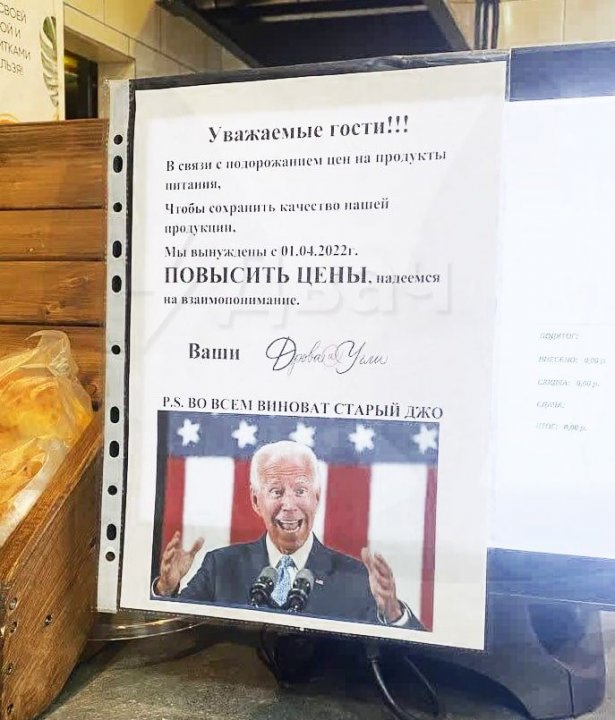 СВОЕЙ
ОЙ И
ИТКАМИ
ЛЬЗЯ!
Уважаемые гости!!!
В связи с подорожанием цен на продукты
питания,
Чтобы сохранить качество нашей
продукции,
Мы вынуждены с 01.04.2022г.
ПОВЫСИТЬ ЦЕНЫ, надеемся
на взаимопонимание.
Двач
Ваши Дрова & Угли
P.S. ВО ВСЕМ ВИНОВАТ СТАРЫЙ ДЖО
ВНЕСЕНО: 0,00 р.
СКИДКА: 0,00 р.
СДАЧА:
ИТОГ: 0,00 р.